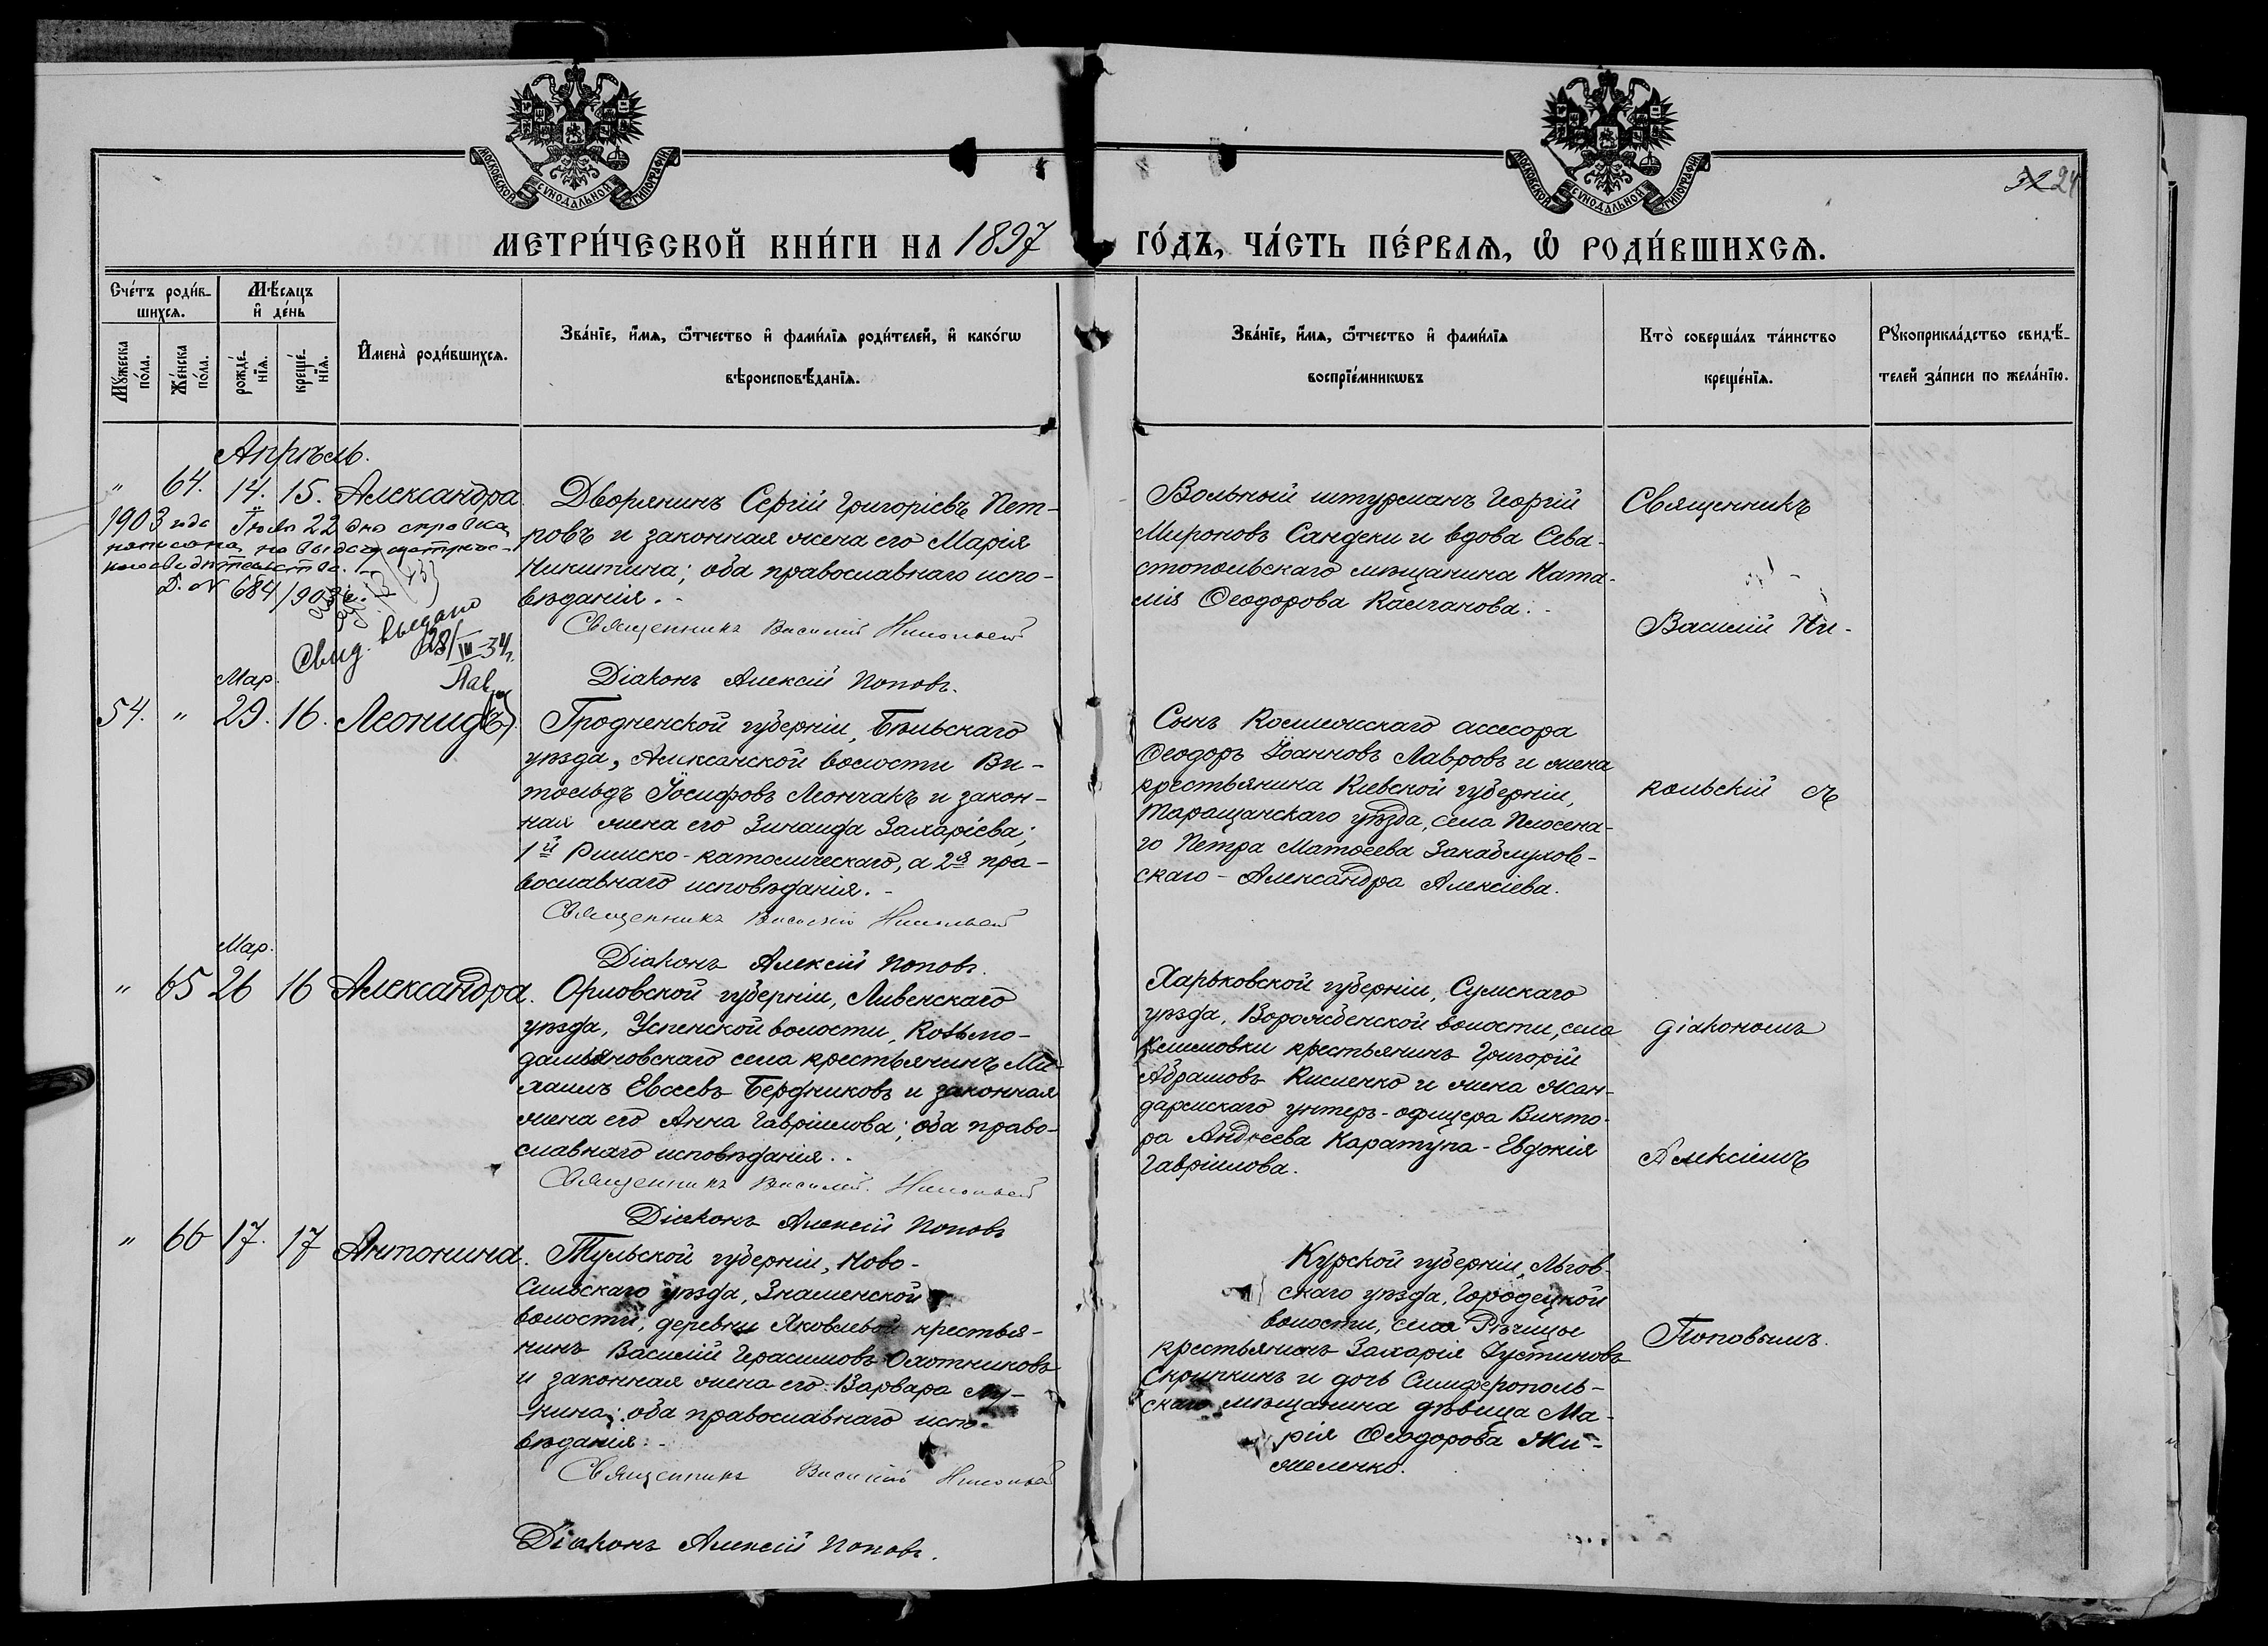 МОСКОВСКОЙ СѴНОДАЛЬНОЙ ТИПОГРАФІИ
МОСКОВСКОЙ СѴНОДАЛЬНОЙ ТИПОГРАФІИ
32 24
МЕТРИ́ЧЕСКОЙ КНИ́ГИ НА 1897 ГО́ДЪ, ЧА́СТЬ ПЕ́РВАѦ, Ѡ҆ РОДИ́ВШИХСѦ.
Сче́тъ роди́в-
шихсѧ.
Мꙋ́жеска по́ла.
Же́нска по́ла.
Мѣ́сѧцъ
и҆ де́нь
рожде́-
нїѧ.
креще́-
нїѧ.
И҆мена̀ роди́вшихсѧ.
Зва́нїе, и҆́мѧ, ѻ҆́тчество и҆ фами́лїѧ роди́телей, и҆ како́гѡ
вѣроисповѣ́данїѧ.
Зва́нїе, и҆́мѧ, ѻ҆́тчество и҆ фами́лїѧ
воспрїе́мникѡвъ
Кто̀ соверша́лъ та́инство
креще́нїѧ.
Рꙋкоприкла́дство свидѣ́-
телей за́писи по жела́нїю.
Апрѣль.
" 64. 14. 15. Александра
Дворянинъ Сергій Григоріевъ Пет-
ровъ и законная жена его Марія
Никитина; оба православнаго испо-
вѣданія.-
Священникъ Василій Никольскій
Діаконъ Алексій Поповъ.
1903 года Іюля 22 дня справка
написана на выдачу метричес-
каго свидѣтельства.
Д. № 684/1903 г.
Свид. выдано
28/III-34 г.
Вольный штурманъ Георгій
Мироновъ Сандеки и вдова Сева-
стопольскаго мѣщанина Ната-
лія Ѳеодорова Калганова.-
Священникъ
Василій Ни-
Мар.
54. " 29. 16. Леонидъ
Гродненской губерніи, Бѣльскаго
уѣзда, Алексанской волости Ви-
тольдъ Іосифовъ Леончакъ и закон-
ная жена его Зинаида Захаріева;
1й Римско-католическаго, а 2я пра-
вославнаго исповѣданія.-
Священникъ Василій Никольскій
Діаконъ Алексій Поповъ.
Сынъ Коллежскаго ассесора
Ѳеодоръ Іоанновъ Лавровъ и жена
крестьянина Кіевской губерніи,
Таращанскаго уѣзда, села
го Петра Матѳеева Закаблуков-
скаго - Александра Алексіева.
кольскій съ
Мар.
" 65 26 16 Александра.
Орловской губерніи, Ливенскаго
уѣзда, Успенской волости, Козьмо-
даміановскаго села крестьянинъ Ми-
хаилъ Евсеевъ Бердниковъ и законная
жена его Анна Гавріилова; оба право-
славнаго исповѣданія..
Священникъ Василій Никольскій
Діаконъ Алексій Поповъ
Харьковской губерніи, Сумскаго
уѣзда, Ворожбенской волости, села
Климовки крестьянинъ Григорій
Абрамовъ Кисленко и жена жан-
дармскаго унтеръ-офицера Викто-
ра Андреева Каратупа - Евдокія
Гавріилова.
діакономъ
Алексіемъ
" 66 17. 17 Антонина.
Тульской губерніи, Ново-
сильскаго уѣзда, Знаменской
волости, деревни Яковлевой крестья-
нинъ Василій Герасимовъ Охотниковъ
и законная жена его Варвара Лу-
кина; оба православнаго испо-
вѣданія.-
Священникъ Василій Никольскій
Діаконъ Алексій Поповъ.
Курской губерніи, Льгов-
скаго уѣзда, Городецкой
волости, села Рѣчицы
крестьянинъ Захарія Іустиновъ
Скрипкинъ и дочь Симферополь-
скаго мѣщанина дѣвица Ма-
рія Ѳеодорова Жи-
Поповымъ.